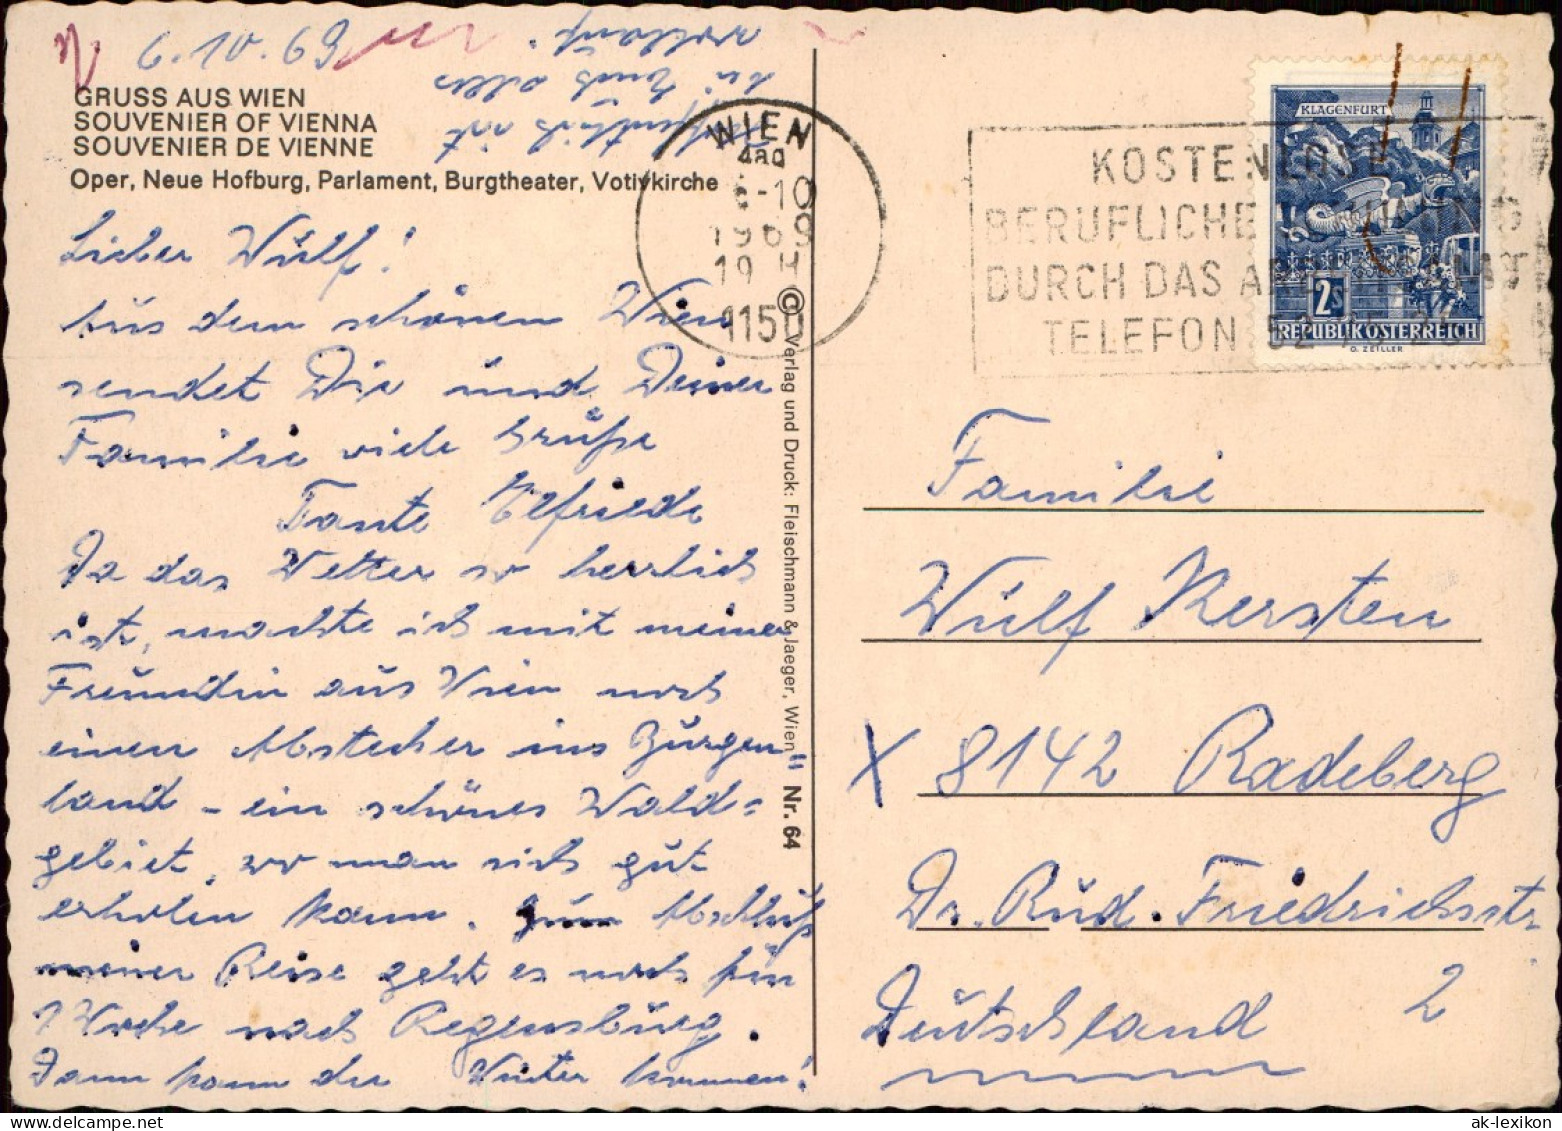 6.10.69
GRUSS AUS WIEN
SOUVENIER OF VIENNA
SOUVENIER DE VIENNE
Oper, Neue Hofburg, Parlament, Burgtheater, Votivkirche
Lieber Wulf!
Aus dem schönen Wien
sendet Dir und Deiner
Familie viele Grüße
Tante Elfriede
Da das Wetter so herrlich
ist, machte ich mit meiner
Freundin aus Wien noch
einen Abstecher ins Burgen=
land – ein schönes Wald=
gebiet, wo man sich gut
erholen kann. Zum Abschluß
meiner Reise geht es noch für
1 Woche nach Regensburg.
Dann kann der Winter kommen!
Hoffentlich ist
bei Euch alles
wohlauf.
Verlag und Druck: Fleischmann & Jaeger, Wien
Nr. 64
WIEN
6-10
1969
19 H
1150
KOSTENLOSE
BERUFLICHE
DURCH DAS
TELEFON 52
KLAGENFURT
2S
REPUBLIK ÖSTERREICH
O. ZEILLER
Familie
Wulf Kersten
X 8142 Radeberg
Dr. Rud. Friedrichsstr.
2
Deutschland
ak-lexikon